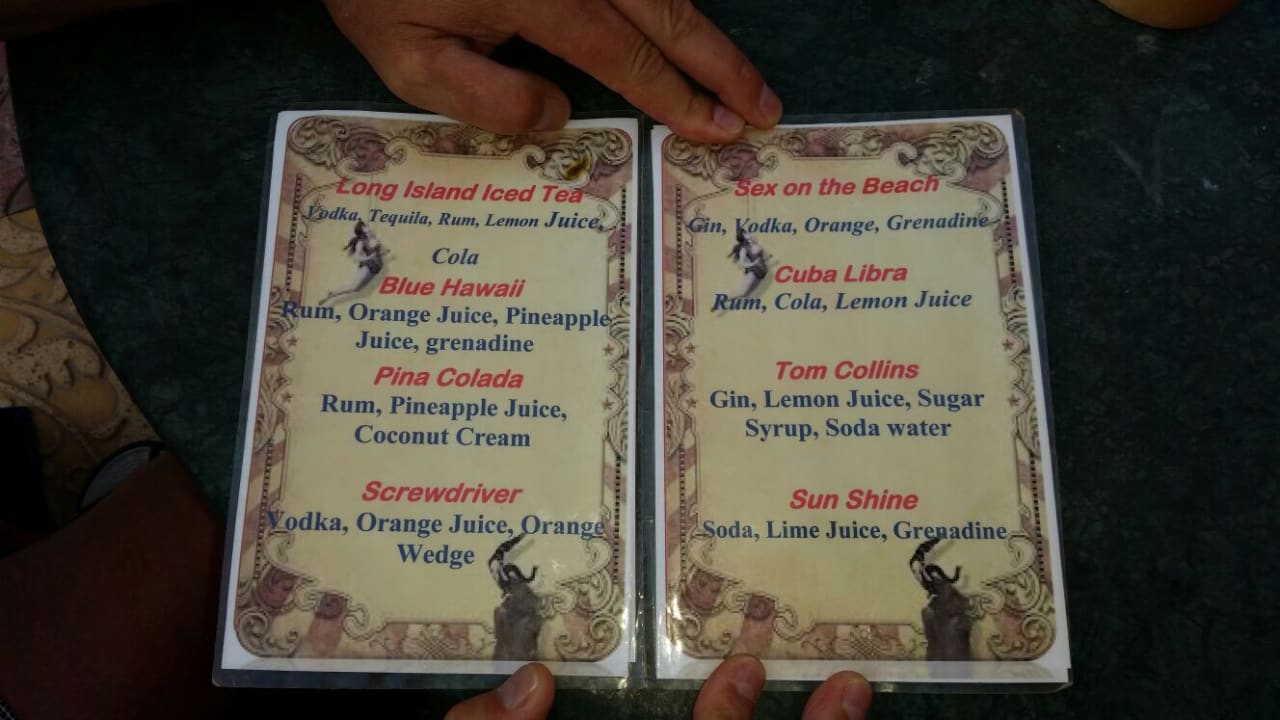 Long Island Iced Tea
Vodka, Tequila, Rum, Lemon Juice,
Cola
Blue Hawaii
Rum, Orange Juice, Pineapple
Juice, grenadine
Pina Colada
Rum, Pineapple Juice,
Coconut Cream
Screwdriver
Vodka, Orange Juice, Orange
Wedge
Sex on the Beach
Gin, Vodka, Orange, Grenadine
Cuba Libra
Rum, Cola, Lemon Juice
Tom Collins
Gin, Lemon Juice, Sugar
Syrup, Soda water
Sun Shine
Soda, Lime Juice, Grenadine